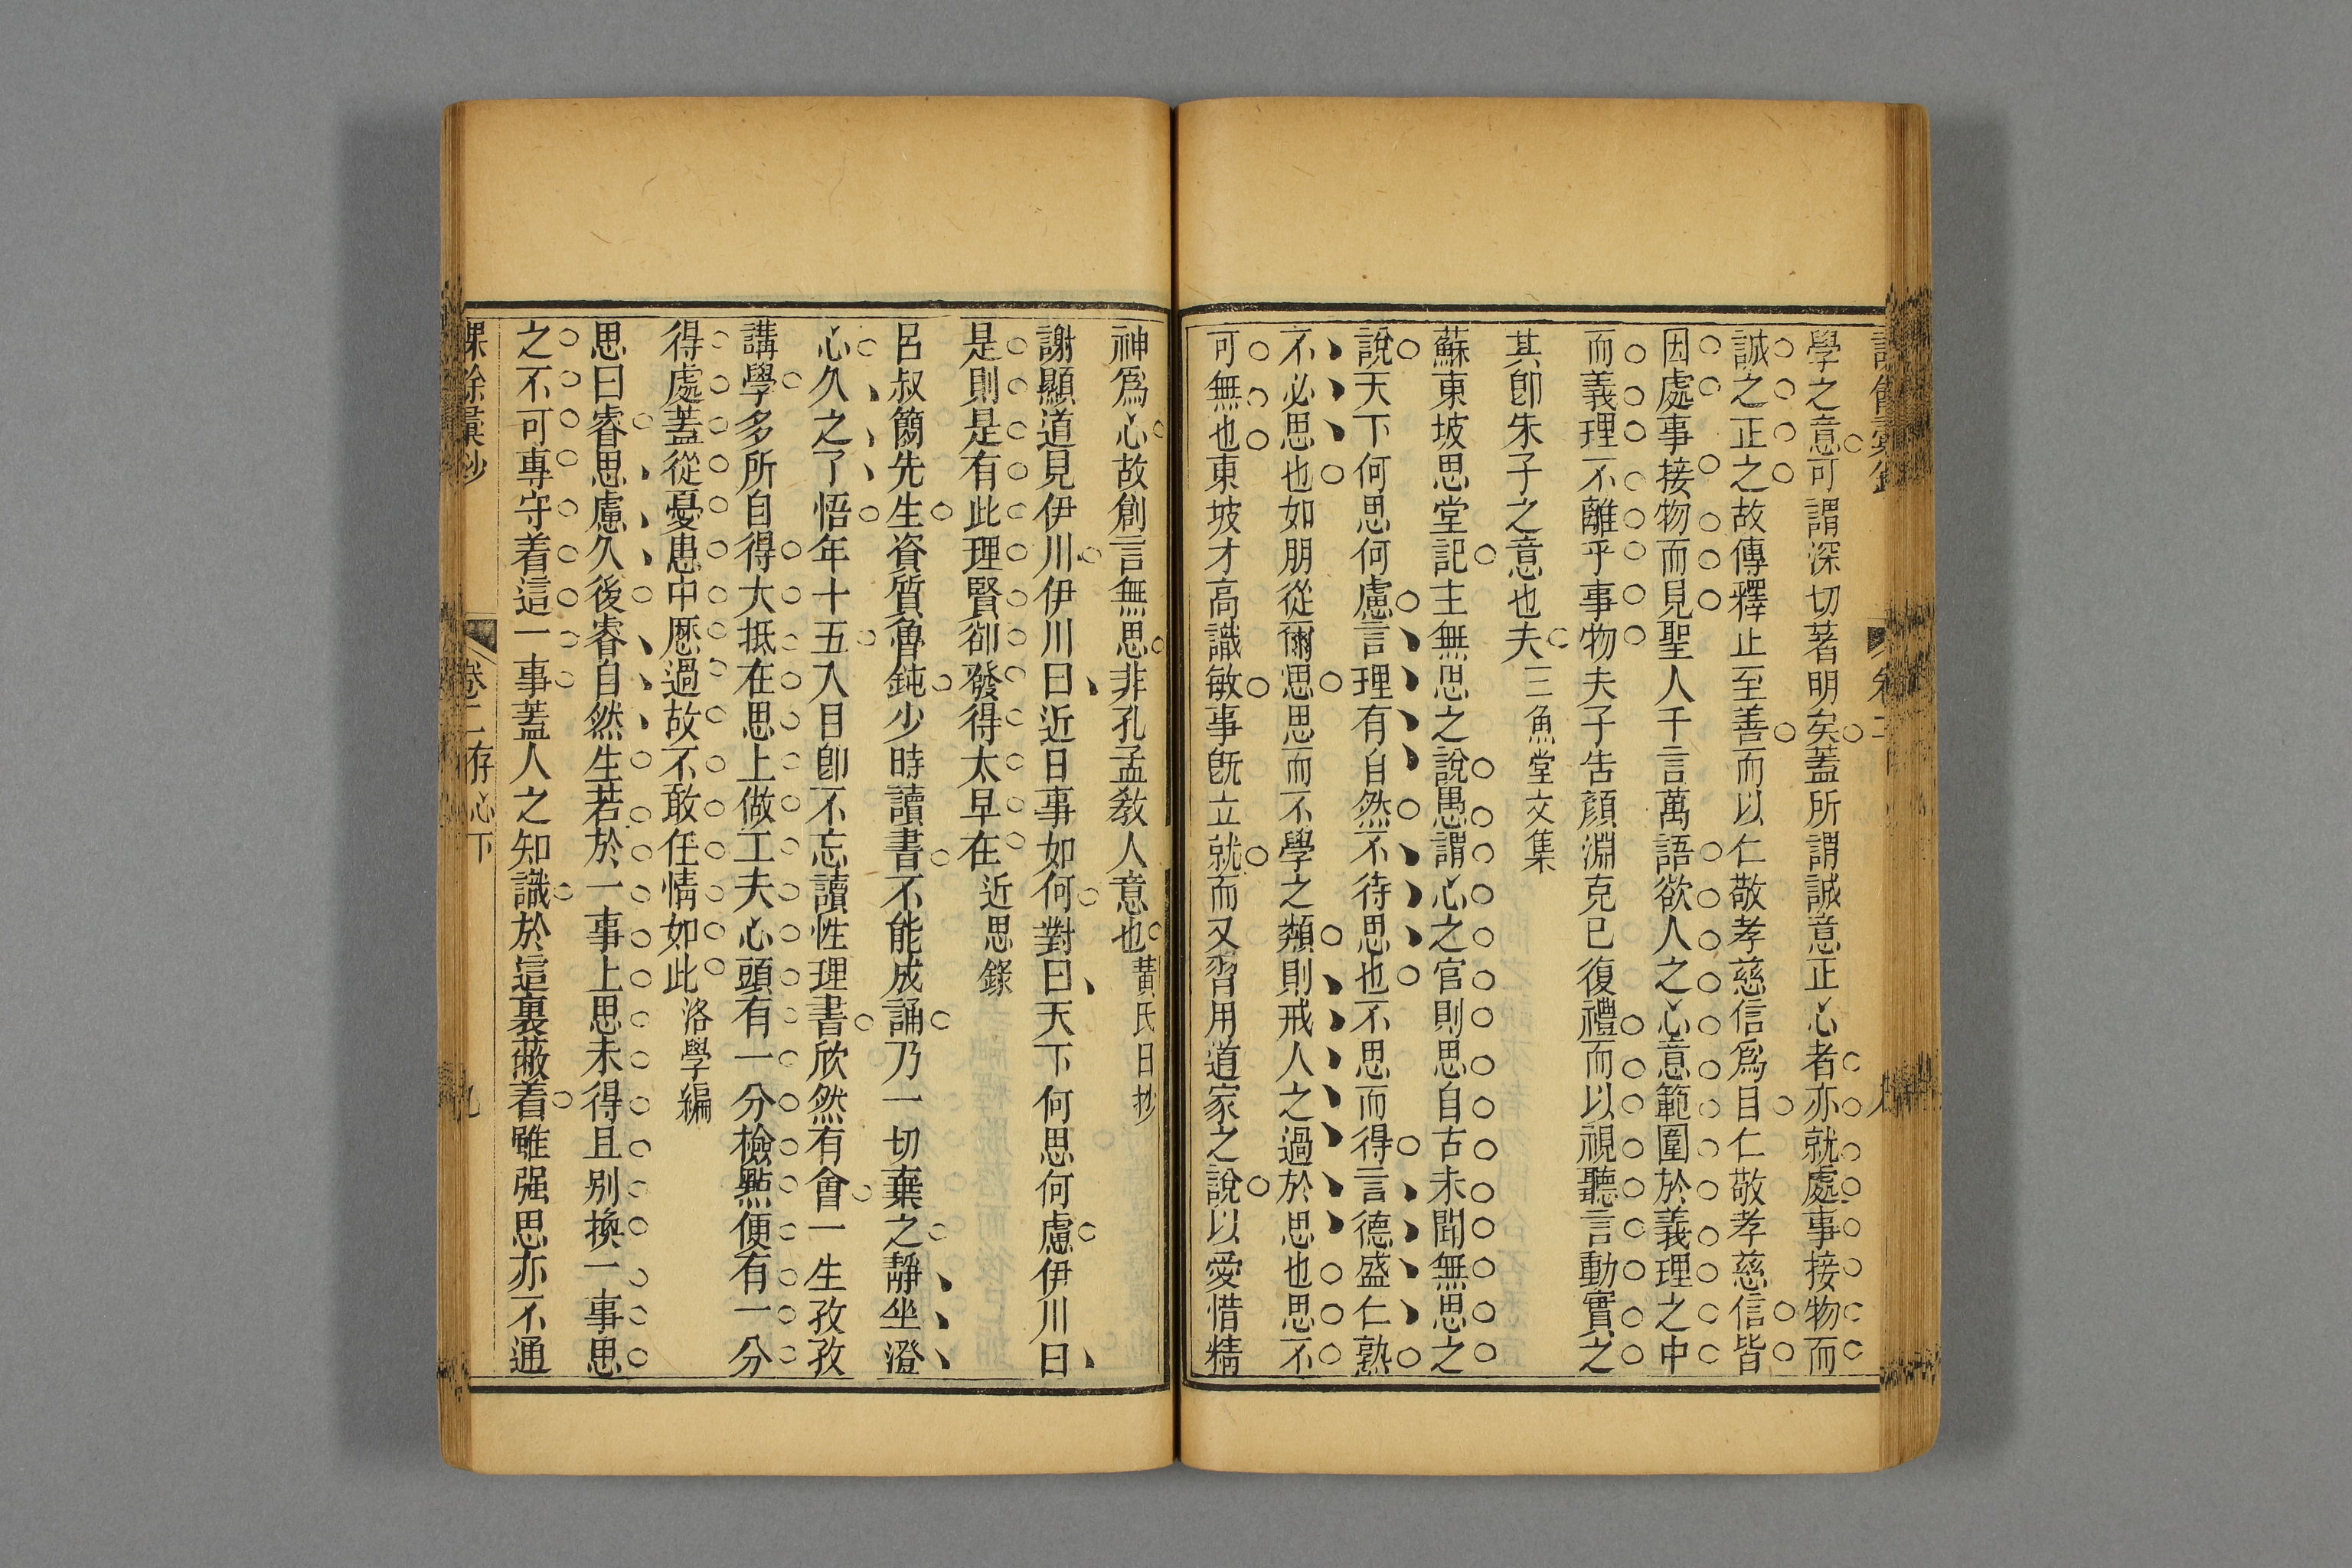 學之意可謂深切著明矣蓋所謂誠意正心者亦就處事接物而
誠之正之故傳釋止至善而以仁敬孝慈信爲目仁敬孝慈信皆
因處事接物而見聖人千言萬語欲人之心意範圍於義理之中
而義理不離乎事物夫子告顏淵克己復禮而以視聽言動實之
其卽朱子之意也夫三魚堂文集
蘇東坡思堂記主無思之說愚謂心之官則思自古未聞無思之
說天下何思何慮言理有自然不待思也不思而得言德盛仁熟
不必思也如朋從爾思思而不學之類則戒人之過於思也思不
可無也東坡才高識敏事旣立就而又習用道家之說以愛惜精
神爲心故創言無思非孔孟敎人意也黃氏日抄
謝顯道見伊川伊川曰近日事如何對曰天下何思何慮伊川曰
是則是有此理賢卻發得太早在近思錄
呂叔簡先生資質魯鈍少時讀書不能成誦乃一切棄之靜坐澄
心久之了悟年十五入目卽不忘讀性理書欣然有會一生孜孜
講學多所自得大抵在思上做工夫心頭有一分檢點便有一分
得處蓋從憂患中歷過故不敢任情如此洛學編
思曰睿思慮久後睿自然生若於一事上思未得且別換一事思
之不可專守着這一事蓋人之知識於這裏蔽着雖强思亦不通
卷二存心下 九